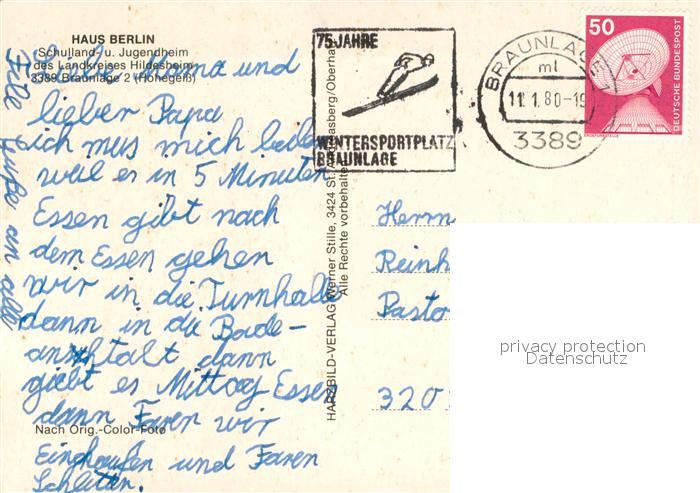 HAUS BERLIN
Schulland- u. Jugendheim
des Landkreises Hildesheim
3389 Braunlage 2 (Hohegeiß)
Liebe Mama und
lieber Papa
ich mus mich beilen
weil es in 5 Minuten
Essen gibt nach
dem Essen gehen
wir in die Turnhalle
dann in die Bade-
anschtalt dann
giebt es Mittag Essen
dann Faren wir
Einkaufen und Faren
Schlitten.
Fille Grüße an alle
Nach Orig.-Color-Foto
HARZBILD-VERLAG Werner Stille, 3424 St. Andreasberg/Oberharz
Alle Rechte vorbehalten
75 JAHRE
WINTERSPORTPLATZ
BRAUNLAGE
BRAUNLAGE 1
ml
11.1.80-19
3389
50
DEUTSCHE BUNDESPOST
Herrn
Reinh
Pasto
320
privacy protection
Datenschutz